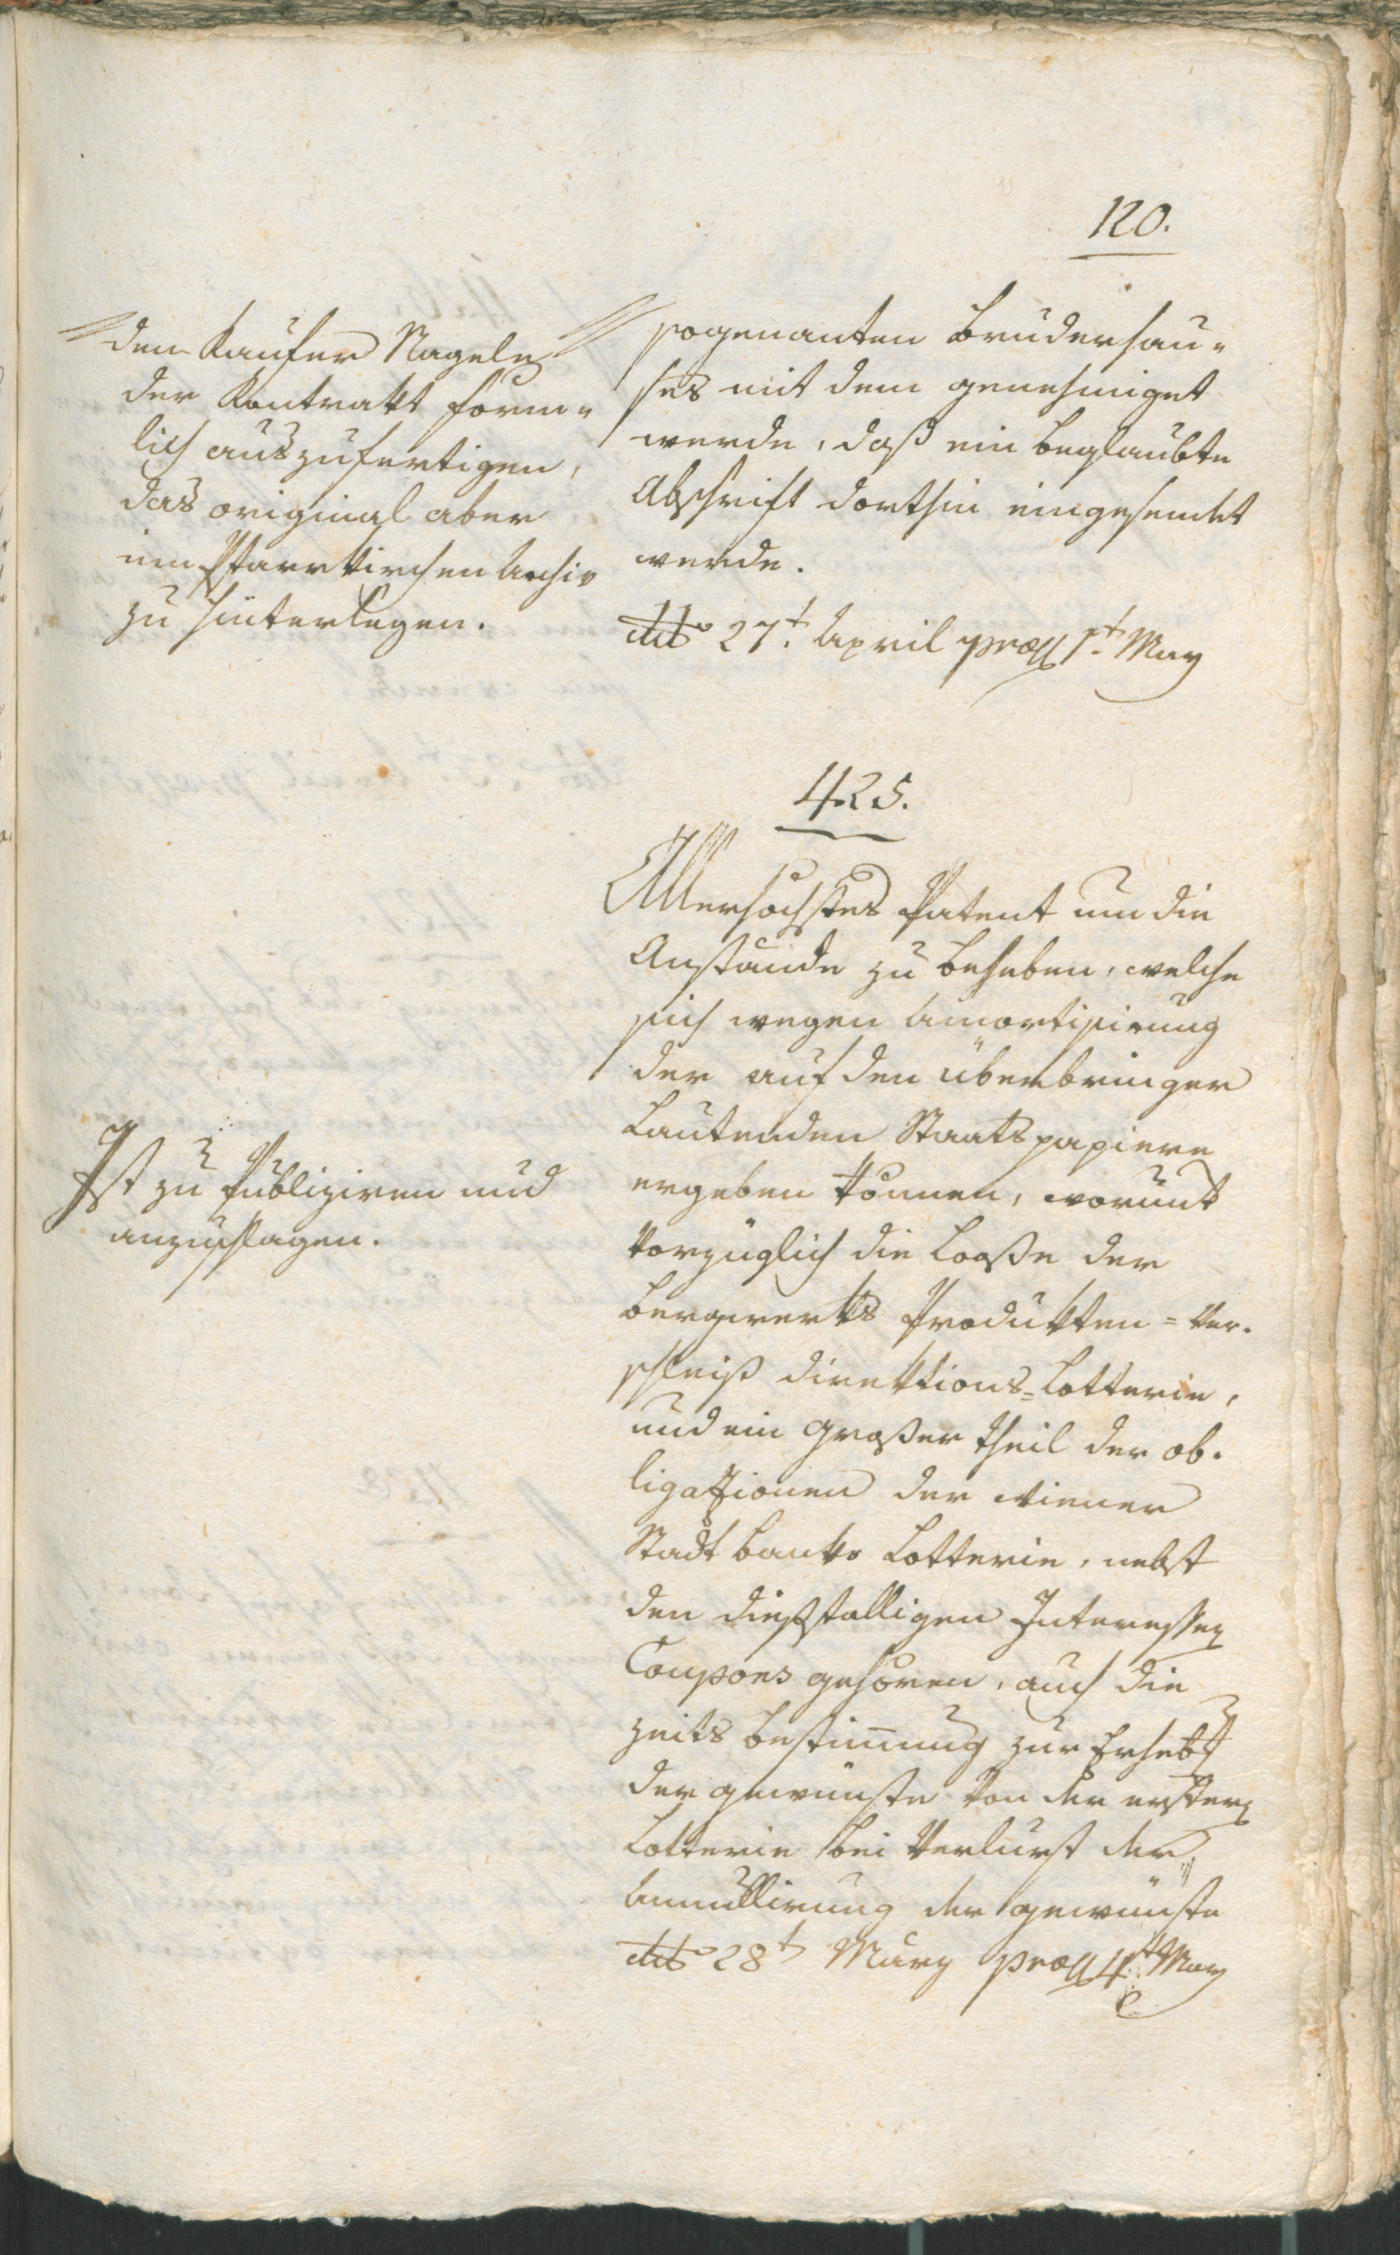 120.
den Kaufer Nagele
der Kontrakt förm-
lich auszufertigen,
das original aber
im Pfarrkirchen Archiv
zu hinterlegen.
sogenanten Bruderhau-
ses mit dem genehmiget
werde, daß ein beglaubte
Abschrift dorthin eingesendet
werde.
ddto 27t. April præs 1t. May
425.
Allerhöchstes Patent um die
Anstände zu beheben, welche
sich wegen Amortisirung
der auf den überbringer
Lautenden Staatspapiere
ergeben können, worunt
vorzüglich die Looße der
Bergwerks Produkten = Ver-
schleiß Direktions=Lotterie,
und ein großer theil der ob-
ligazionen der Wiener
Stadt banko Lotterie, nebst
den dießfälligen Interessen
Coupons gehören, auch die
zeits bestim̄ung zur Erhebg
der gewünste von der ersten
Lotterie bei Verlurst der
Annullirung der gewünste
ddto 28t März præs 4t May
Ist zu Publiziren und
anzuschlagen.